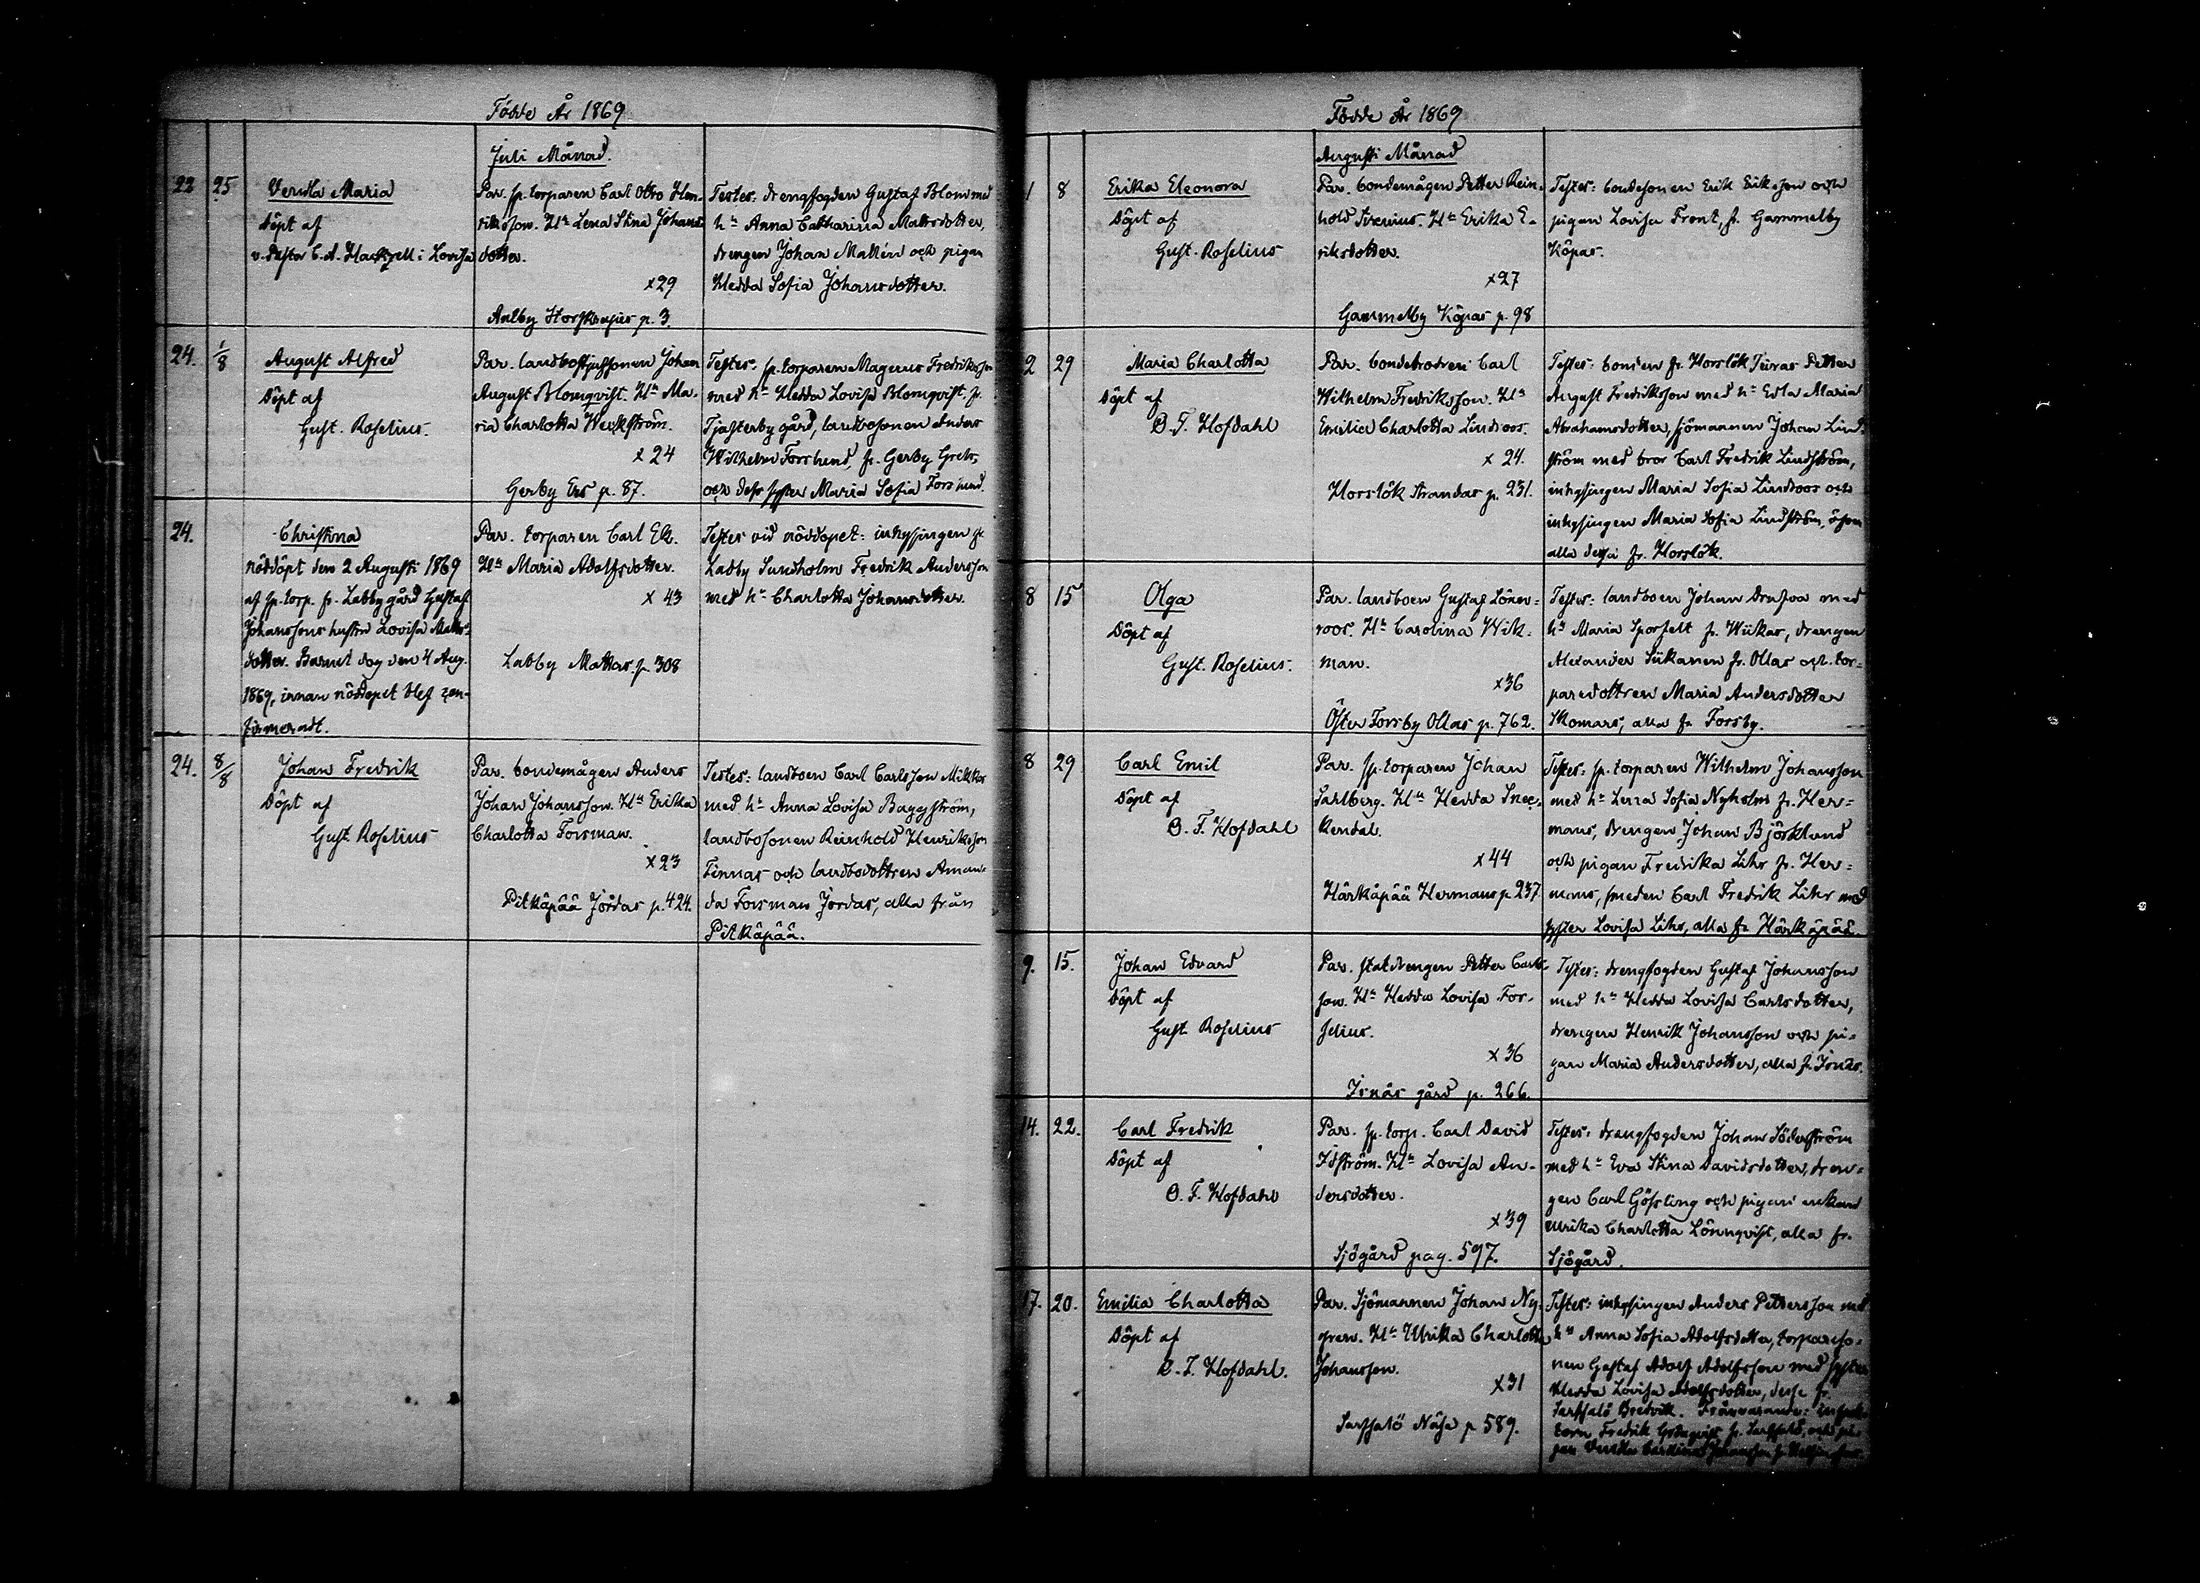 Födde År 1869
Juli Månad.
22 25 Vendla Maria
döpt af
v. Pastor C. A. Hackzell i Lovisa
Par. sp. torparen Carl Otto Hen-
riksson. Hn Lena Stina Johans-
dotter.
x29
Anlby p. 3
Testes: drengfogden Gustaf Blom med
hn Anna Catharina Mattsdotter,
drengen Johan Mallén och pigan
Hedda Sofia Johansdotter.
24. 1/8 August Alfred
döpt af
Gust. Roselius.
Par. Johan
August Blomqvist. Hn Ma-
ria Charlotta Weckström.
x24
Gerby Ers p. 87.
Testes: sp. torparen Magnus Fredriksson
med hn Hedda Lovisa Blomqvist fr.
Tjasterby gård, landbosonen Anders
Wilhelm Forslund, fr. Gerby Grels,
och dess syster Maria Sofia Forslund.
24. Christina
nöddöpt den 2 Augusti 1869
af sp. torp. fr. Labby gård Gustaf
Johanssons hustru Lovisa Matts-
dotter. Barnet dog den 4 Aug.
1869, innan nöddopet blef con-
firmeradt.
Par. torparen Carl Ek.
Hn Maria Adolfsdotter.
x 43
Labby Mattas p. 308
Testes vid nöddopet: inhysingen fr.
Labby Sundholm Fredrik Andersson
med hn Charlotta Johansdotter.
24. 8/8 Johan Fredrik
döpt af
Gust. Roselius
Par. bondemågen Anders
Johan Johansson. Hn Erika
Charlotta Forsman.
x23
Pitkäpää Jordas p. 424.
Testes: landboen Carl Carlsson Mikkos
med hn Anna Lovisa Baggström,
landbosonen Reinhold Henriksson
Finnas och landbodottren Aman-
da Forsman Jordas, alla från
Pitkäpää.
Födde År 1869
Augusti Månad
1 8 Erika Eleonora
Döpt af
Gust. Roselius
Par. bondemågen Petter Rein-
hold Sirenius. Hn Erika E-
riksdotter.
x27
Gammelby Köpas p. 98
Testes: bondesonen Erik Eriksson och
pigan Lovisa Front, fr. Gammelby
Köpas.
2 29 Maria Charlotta
Döpt af
O. F. Hofdahl
Par. bondebrodren Carl
Wilhelm Fredriksson. Hn
Emilia Charlotta Lindroos.
x 24.
Horslök Strandas p. 231.
Testes: bonden fr. Horslök Petter
August Fredriksson med hn Edla Maria
Abrahamsdotter, sjömannen Johan Lind-
ström med bror Carl Fredrik Lindström,
inhysingen Maria Sofia Lindroos och
inhysingen Maria Sofia Lindström,
alla dessa fr. Horslök.
8 15 Olga
Döpt af
Gust. Roselius.
Par. landboen Gustaf Lönn-
roos. Hn Carolina Wik-
man.
x36
Öster Forsby Ollas p. 762.
Testes: landboen Johan med
hn Maria Sporfelt fr. Wikar, drengen
Alexander Siikanen fr. Ollas och tor-
paredottren Maria Andersdotter
Skomars, alla fr. Forsby.
8 29 Carl Emil
Döpt af
O. F. Hofdahl
Par. sp. torparen Johan
Sahlberg. Hn Hedda Snec-
kendal.
x44
Härkäpää Hermans p 237
Testes: sp. torparen Wilhelm Johansson
med hn Lena Sofia Nyholm fr. Her-
mans, drengen Johan Björklund
och pigan Fredrika Lihr fr. Her-
mans, smeden Carl Fredrik Lihr med
syster Lovisa Lihr, alla fr. Härkäpää.
9. 15. Johan Edvard
Döpt af
Gust. Roselius
Par. statdrengen Petter Carls-
son. Hn Hedda Lovisa For-
selius.
x36
Isnäs gård p. 266.
Testes: drengfogden Gustaf Johansson
med hn Hedda Lovisa Carlsdotter,
drengen Henrik Johansson och pi-
gan Maria Andersdotter, alla fr. Isnäs.
14. 22. Carl Fredrik
Döpt af
O. F. Hofdahl
Par. sp. torp. Carl David
Idström. Hn Lovisa An-
dersdotter.
x39
Sjögård pag. 597.
Testes: drengfogden Johan Söderström
med hn Eva Stina Davidsdotter, dren-
gen Carl Gössling och pigan enkan
Ulrika Charlotta Lönnqvist, alla fr.
Sjögård.
17. 20. Emilia Charlotta
Döpt af
O. F. Hofdahl.
Par. Sjömannen Johan Ny-
gren. Hn Ulrika Charlotta
Johansson.
x31
Sarfsalö Näse p 589.
Testes: inhysingen Anders Pettersson med
hn Anna Sofia Adolfsdotter, torpareso-
nen Gustaf Adolf Adolfsson med syster
Hedda Lovisa Adolfsdotter, desse fr.
Sarfsalö Bredvik. Frånvarande:
Fredrik fr. Sarfsalö, och pi-
gan Vendla Carolina Johansson